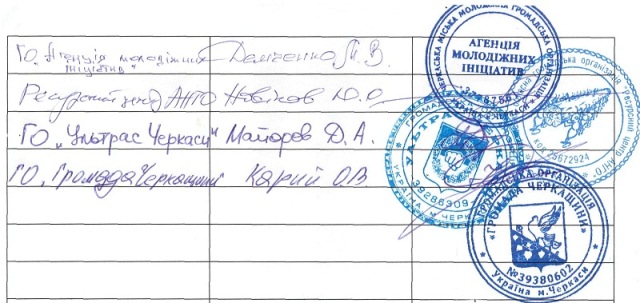 ГО „Агенція молодіжних ініціатив" Демченко М. В.
Ресурсний центр АНГО Новіков Ю.О.
ГО „Ультрас Черкаси" Майоров Д. А.
ГО „Громада Черкащини" Карий О.В.
ЧЕРКАСЬКА МІСЬКА МОЛОДІЖНА ГРОМАДСЬКА
АГЕНЦІЯ
МОЛОДІЖНИХ
ІНІЦІАТИВ
УКРАЇНА м. ЧЕРКАСИ
організація "Ресурсний центр АНГО"
25672924
УЛЬТРАС
39286309
УКРАЇНА, м. ЧЕРКАСИ
ГРОМАДСЬКА ОРГАНІЗАЦІЯ
«ГРОМАДА ЧЕРКАЩИНИ»
№39380602
Україна м.Черкаси